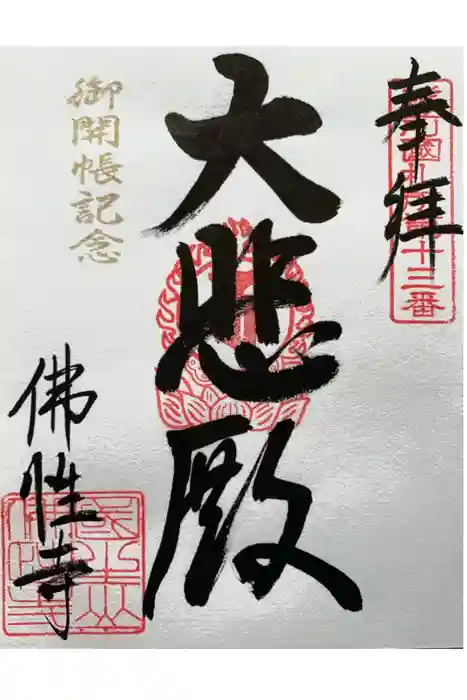 奉拝
十三番
大悲殿
御開帳記念
佛性寺